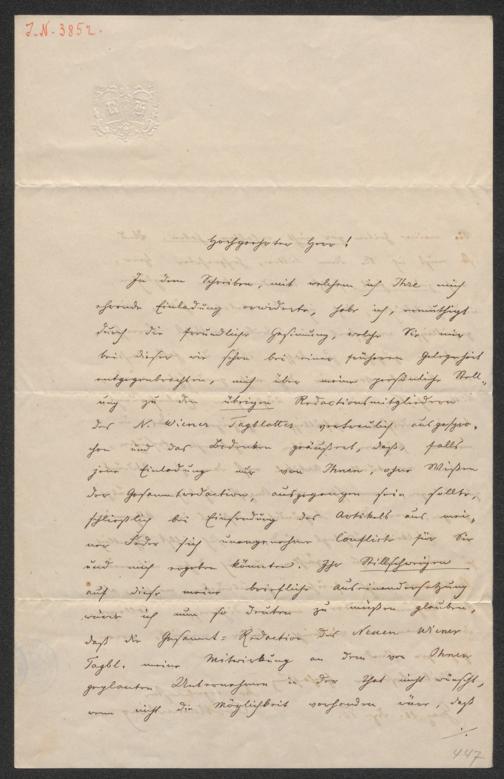 J.N. 3852.
Hochgeehrter Herr!
In dem Schreiben, mit welchem ich Ihre mich
ehrende Einladung erwiderte, habe ich, ermuthigt
durch die freundliche Gesinnung, welche Sie mir
bei dieser wie schon bei einer früheren Gelegenheit
entgegenbrachten, mich über meine persönliche Stell-
ung zu den übrigen Redactionsmitgliedern
des N. Wiener Tagblattes vertraulich ausgespro-
chen und das Bedenken geäußert, daß, falls
jene Einladung nur von Ihnen, ohne Wissen
der Gesammtredaction, ausgegangen sein sollte,
schließlich bei Einsendung des Artikels aus mei-
ner Feder sich unangenehme Conflicte für Sie
und mich ergeben könnten. Ihr Stillschweigen
auf diese meine briefliche Auseinandersetzung
würde ich nun so deuten zu müßen glauben,
daß die Gesammt-Redaction des Neuen Wiener
Tagbl. meine Mitwirkung an dem von Ihnen
geplanten Unternehmen in der That nicht wünscht,
wenn nicht die Möglichkeit vorhanden wäre, daß
./.
447